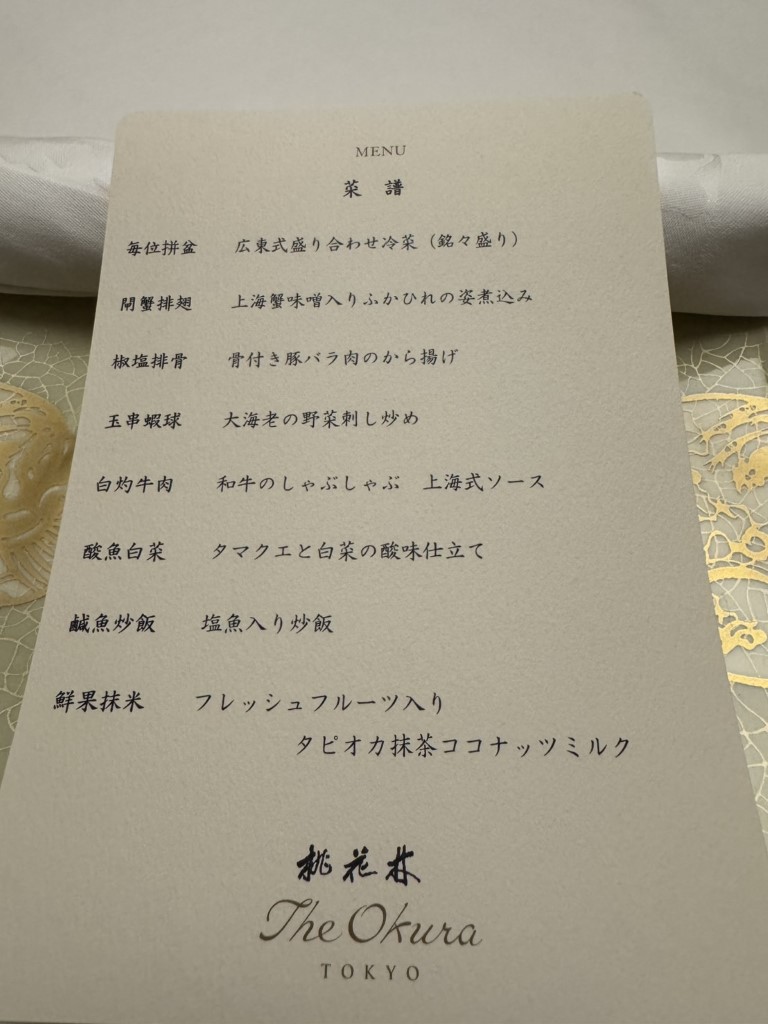 MENU
菜 譜
毎位拼盆 広東式盛り合わせ冷菜（銘々盛り）
閘蟹排翅 上海蟹味噌入りふかひれの姿煮込み
椒塩排骨 骨付き豚バラ肉のから揚げ
玉串蝦球 大海老の野菜刺し炒め
白灼牛肉 和牛のしゃぶしゃぶ 上海式ソース
酸魚白菜 タマクエと白菜の酸味仕立て
鹹魚炒飯 塩魚入り炒飯
鮮果抹米 フレッシュフルーツ入り
タピオカ抹茶ココナッツミルク
桃花林
The Okura
TOKYO